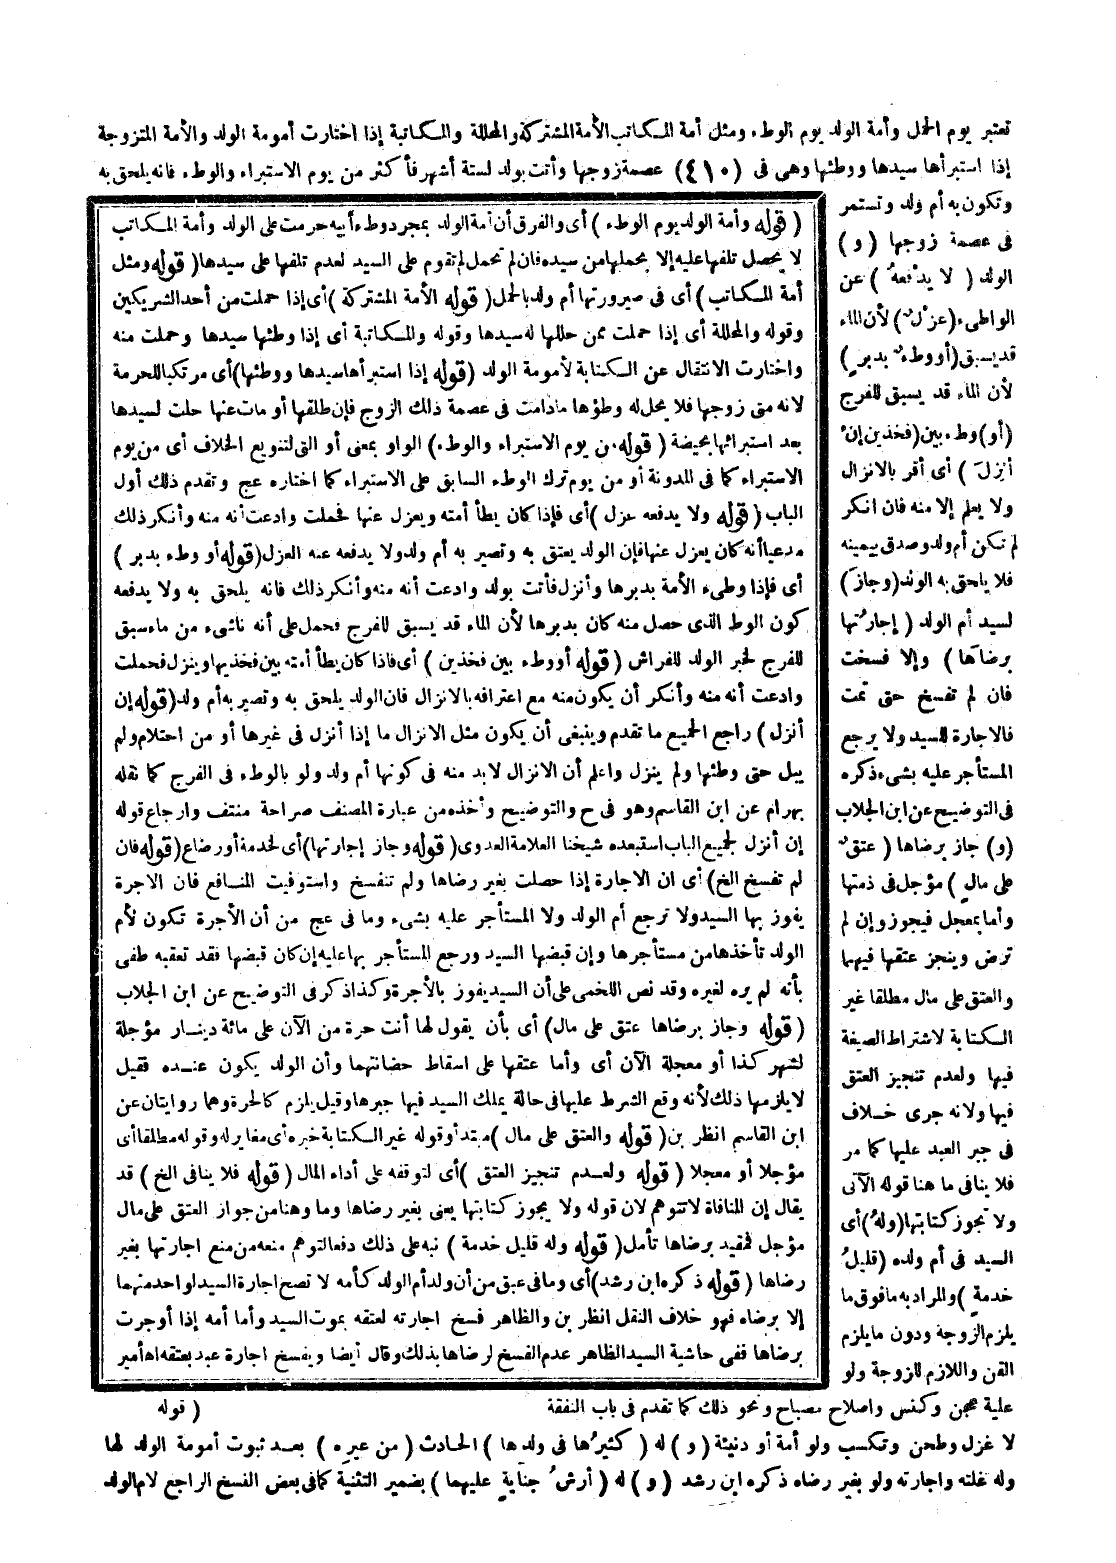 تعتبر يوم الحمل وأمة الولد يوم الوطء ومثل أمة المكاتب الأمة المشتركة والمحللة والمكاتبة إذا اختارت أمومة الولد والأمة المتزوجة
إذا استبرأها سيدها ووطئها وهى فى (٤١٠) عصمة زوجها وأتت بولد لستة أشهر فأكثر من يوم الاستبراء والوطء فانه يلحق به
وتكون به أم ولد وتستمر
فى عصمة زوجها (و)
الولد ( لا يدفعهُ ) عن
الواطىء (عزلٌ) لأن الماء
قد يسبق (أو وطءٌ بدبرٍ )
لأن الماء قد يسبق للفرج
(أو) وطء بين (فخذين إنْ
أنزلَ ) أى أقر بالانزال
ولا يعلم إلا منه فان انكر
لم تكن أم ولد وصدق بيمينه
فلا يلحق به الولد (وجازَ)
لسيد أم الولد ( إجارتُها
برضاها ) وإلا فسخت
فان لم تفسخ حتى تمت
فالاجارة للسيد ولا يرجع
المستأجر عليه بشىء ذكره
فى التوضيح عن ابن الجلاب
(و) جاز برضاها ( عتقٌ
على مالٍ ) مؤجل فى ذمتها
وأما بمعجل فيجوز وإن لم
ترض وينجز عتقها فيهما
والعتق على مال مطلقا غير
الكتابة لاشتراط الصيغة
فيها ولعدم تنجيز العتق
فيها ولانه جرى خلاف
فى جبر العبد عليها كما مر
فلا ينافى ما هنا قوله الآتى
ولا تجوز كتابتها (ولهُ) أى
السيد فى أم ولده (قليلُ
خدمةٍ ) والمراد به ما فوق ما
يلزم الزوجة ودون ما يلزم
القن واللازم للزوجة ولو
علية عجن وكنس واصلاح مصباح ونحو ذلك كما تقدم فى باب النفقة
لا غزل وطحن وتكسب ولو أمة أو دنيئة (و) له ( كثيرُها فى ولدها ) الحادث ( من غيره ) بعد ثبوت أمومة الولد لها
وله غلته واجارته ولو بغير رضاه ذكره ابن رشد (و) له ( أرشُ جنايةٍ عليهما ) بضمير التثنية كما فى بعض النسخ الراجع لام الولد
( قوله وأمة الولد يوم الوطء ) أى والفرق أن أمة الولد بمجرد وطء أبيه حرمت على الولد وأمة المكاتب
لا يحصل تلفها عليه إلا بحملها من سيده فان لم تحمل لم تقوم على السيد لعدم تلفها على سيدها ( قوله ومثل
أمة المكاتب ) أى فى صيرورتها أم ولد بالحمل ( قوله الأمة المشتركة ) أى إذا حملت من أحد الشريكين
وقوله والمحللة أى إذا حملت ممن حللها له سيدها وقوله والمكاتبة أى إذا وطئها سيدها وحملت منه
واختارت الانتقال عن الكتابة لأمومة الولد (قوله إذا استبرأها سيدها ووطئها) أى مرتكبا للحرمة
لانه متى زوجها فلا يحل له وطؤها مادامت فى عصمة ذلك الزوج فإن طلقها أو مات عنها حلت لسيدها
بعد استبرائها بحيضة ( قوله من يوم الاستبراء والوطء) الواو بمعنى أو التى لتنويع الخلاف أى من يوم
الاستبراء كما فى المدونة أو من يوم ترك الوطء السابق على الاستبراء كما اختاره عج وتقدم ذلك أول
الباب ( قوله ولا يدفعه عزل ) أى فإذا كان يطأ أمته ويعزل عنها فحملت وادعت أنه منه وأنكر ذلك
مدعيا أنه كان يعزل عنها فإن الولد يعتق به وتصير به أم ولد ولا يدفعه عنه العزل (قوله أو وطء بدبر )
أى فإذا وطىء الأمة بدبرها وأنزل فأتت بولد وادعت أنه منه وأنكر ذلك فانه يلحق به ولا يدفعه
كون الوط الذى حصل منه كان بدبرها لأن الماء قد يسبق للفرج فحمل على أنه ناشىء من ماء سبق
للفرج لخبر الولد للفراش ( قوله أو وطء بين فخذين ) أى فاذا كان يطأ أمته بين فخذيها وينزل فحملت
وادعت أنه منه وأنكر أن يكون منه مع اعترافه بالانزال فان الولد يلحق به وتصير به أم ولد (قوله إن
أنزل ) راجع لجميع ما تقدم وينبغى أن يكون مثل الانزال ما إذا أنزل فى غيرها أو من احتلام ولم
يبل حتى وطئها ولم ينزل واعلم أن الانزال لابد منه فى كونها أم ولد ولو بالوطء فى الفرج كما نقله
بهرام عن ابن القاسم وهو فى ح والتوضيح وأخذه من عبارة المصنف صراحة منتف وارجاع قوله
إن أنزل لجميع الباب استبعده شيخنا العلامة العدوى ( قوله وجاز إجارتها) أى لخدمة أو رضاع (قوله فان
لم تفسخ الخ ) أى ان الاجارة إذا حصلت بغير رضاها ولم تنفسخ واستوفيت المنافع فان الاجرة
يفوز بها السيد ولا ترجع أم الولد ولا المستأجر عليه بشىء وما فى عج من أن الأجرة تكون لأم
الولد تأخذها من مستأجرها وإن قبضها السيد ورجع المستأجر بها عليه إن كان قبضها فقد تعقبه طفى
بأنه لم يره لغيره وقد نص اللخمى على أن السيد يفوز بالأجرة وكذا ذكر فى التوضيح عن ابن الجلاب
( قوله وجاز برضاها عتق على مال) أى بأن يقول لها أنت حرة من الآن على مائة دينار مؤجلة
لشهر كذا أو معجلة الآن أى وأما عتقها على اسقاط حضانتهما وأن الولد يكون عنده فقيل
لا يلزمها ذلك لأنه وقع الشرط عليها فى حالة يملك السيد فيها جبرها وقيل يلزم كالحرة وهما روايتان عن
ابن القاسم انظر بن ( قوله والعتق على مال ) مبتدأ وقوله غير الكتابة خبره أى مغاير له وقوله مطلقا أى
مؤجلا أو معجلا ( قوله ولعدم تنجيز العتق ) أى لتوقفه على أداء المال ( قوله فلا ينافى الخ ) قد
يقال إن المنافاة لا تتوهم لان قوله ولا يجوز كتابتها يعنى بغير رضاها وما وهنا من جواز العتق على مال
مؤجل فمقيد برضاها تأمل ( قوله وله قليل خدمة ) نبه على ذلك دفعا لتوهم منعه من منع اجارتها بغير
رضاها ( قوله ذكره ابن رشد) أى وما فى عبق من أن ولد أم الولد كأمه لا تصح اجارة السيد لواحد منهما
إلا برضاه فهو خلاف النقل انظر بن والظاهر فسخ اجارته لعتقه بموت السيد وأما أمه إذا أوجرت
برضاها ففى حاشية السيد الظاهر عدم الفسخ لرضاها بذلك وقال أيضا ويفسخ اجارة عبد بعتقه اه أمير
( قوله